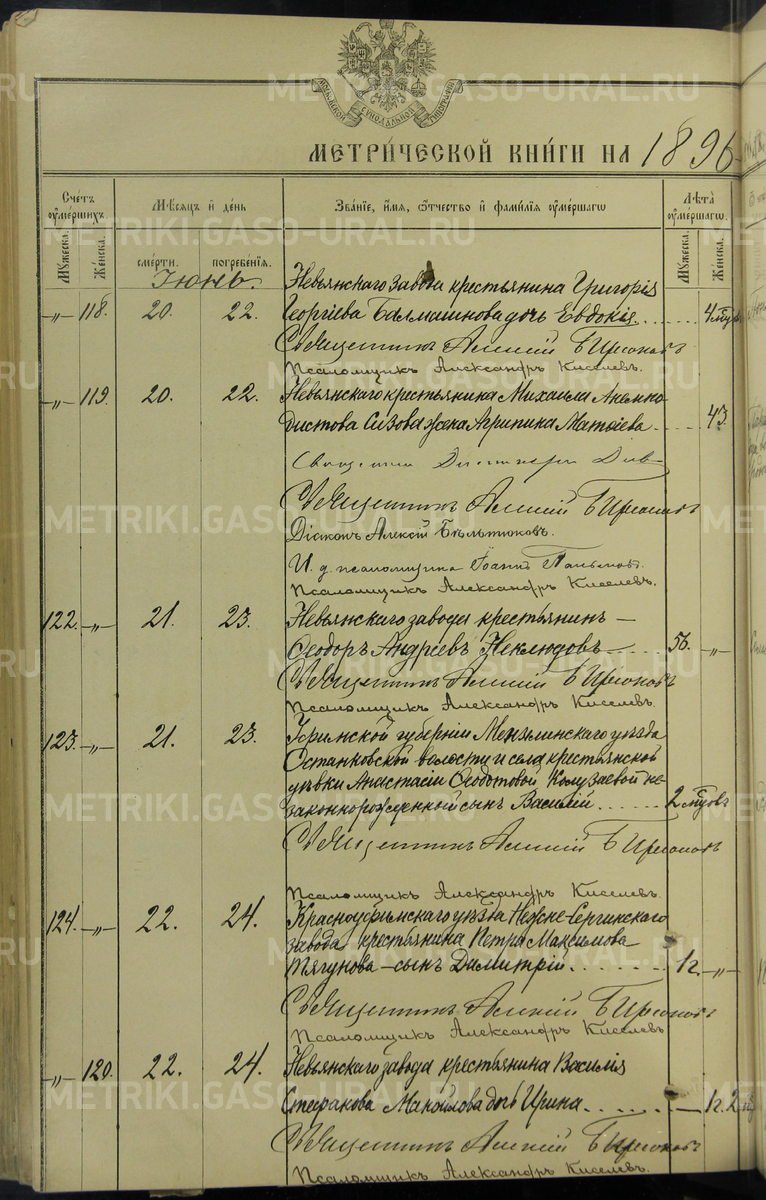 МЕТРИ́ЧЕСКОЙ КНИ́ГИ НА 1896
Сче́тъ ᲂуме́ршихъ.
Мѣ́сяцъ и҆ де́нь
Зва́нїе, и҆́мя, ѻ҆́тчество и҆ фамі́лїя ᲂуме́ршагѡ
Лѣ́та ᲂуме́ршагѡ.
Му́жеска.
Же́нска.
сме́рти.
погребе́нїя.
Му́жеска.
Же́нска.
Іюнь.
Невьянскаго завода крестьянина Григорія
-"- 118. 20. 22. Георгіева Балмашнова дочь Евдокія. 4 мѣсяц
Священникъ Алексій
Псаломщикъ Александръ Киселевъ.
-"- 119. 20. 22. Невьянскаго крестьянина Михаила
Сизова жена Агрипина Матвіева 43.
Священникъ Алексій
Діаконъ Алексій Бѣльтюковъ.
И. д. псаломщика Іоаннъ
Псаломщикъ Александръ Киселевъ.
122. -"- 21. 23. Невьянскаго завода крестьянинъ —
Ѳеодоръ Андреевъ Неклюдовъ 56. -"-
Священникъ Алексій
Псаломщикъ Александръ Киселевъ.
123. -"- 21. 23. Уфимской губерніи Мензелинскаго уѣзда
Останковской волости и села крестьянской
дѣвки Анастасіи Ѳеодотовой Колузаевой не-
законнорожденный сынъ Василій 2 мѣсяцъ
Священникъ Алексій
Псаломщикъ Александръ Киселевъ.
124. -"- 22. 24. Красноуфимскаго уѣзда Нижне-Сергинскаго
завода крестьянина Петра Максимова
Тягунова — сынъ Димитрій 1 г. -"-
Священникъ Алексій
Псаломщикъ Александръ Киселевъ
-"- 120. 22. 24. Невьянскаго завода крестьянина Василія
Стефанова Манойлова дочь Ирина 1 г. 2
Священникъ Алексій
Псаломщикъ Александръ Киселевъ.
METRIKI.GASO-URAL.RU